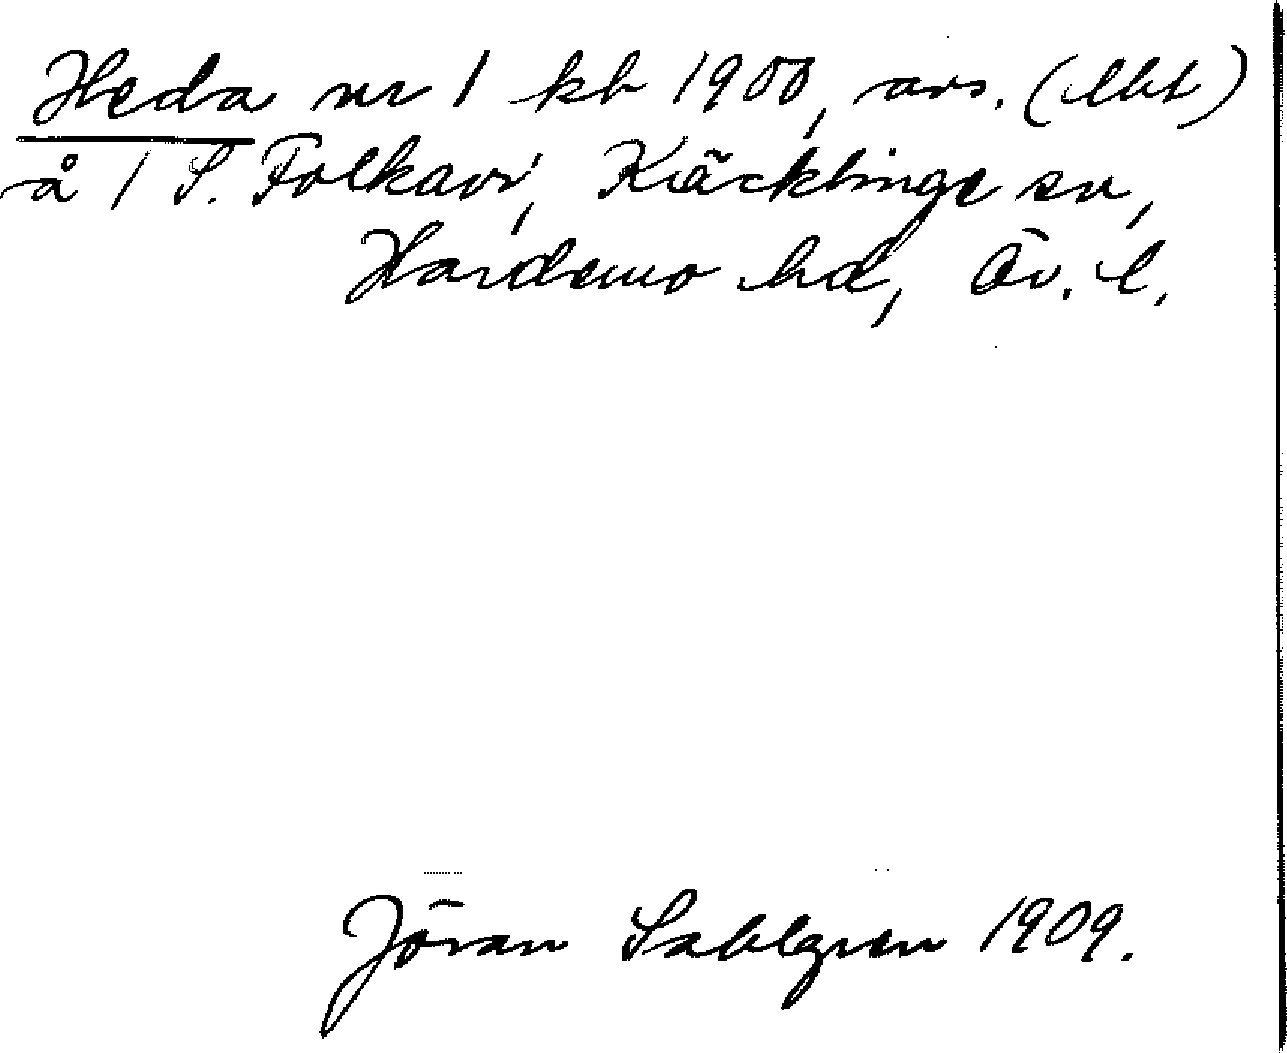 Heda nr 1 kb 1900, avs. (lht)
å 1 S. Folkavi, Kräcklinge sn,
Hardemo hd, Öv. l.
Jöran Sahlgren 1909.